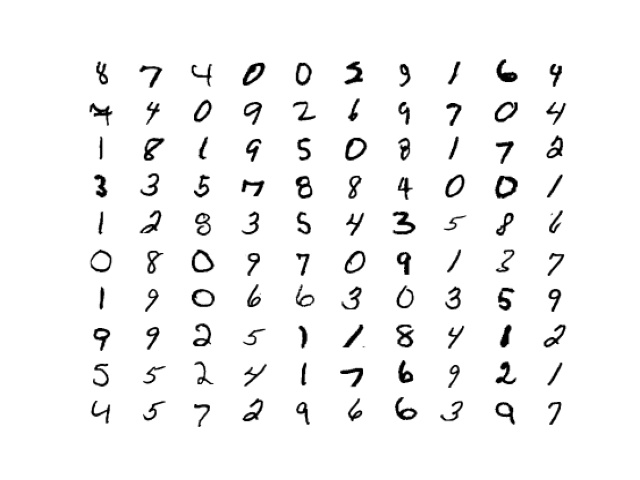 8 7 4 0 0 2 9 1 6 9
7 4 0 9 2 6 9 7 0 4
1 8 1 9 5 0 8 1 7 2
3 3 5 7 8 8 4 0 0 1
1 2 8 3 5 4 3 5 8 6
0 8 0 9 7 0 9 1 3 7
1 9 0 6 6 3 0 3 5 9
9 9 2 5 1 1 8 4 1 2
5 5 2 4 1 7 6 9 2 1
4 5 7 2 9 6 6 3 9 7